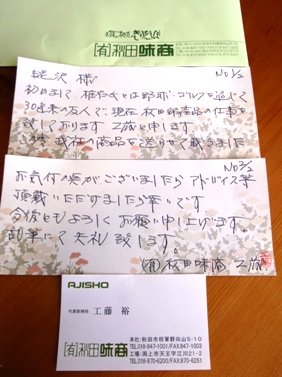 (有)秋田味商
No 1/2
様
初めまして、
30年来の友人で、現在秋田
致しております 工藤と申します。
の商品を送らせて戴きました
No 2/2
お気付の点がございましたらアドバイス等
頂戴いただけましたら幸いです
今後ともよろしくお願い申し上げます。
乱筆にて失礼致します。
(有)秋田味商 工藤
AJISHO
代表取締役 工藤 裕
(有)秋田味商
本社:秋田市将軍野向山5-10
TEL018-847-1001/FAX847-1003
工場:潟上市天王字江川21-2
TEL018-870-6200/FAX870-6251